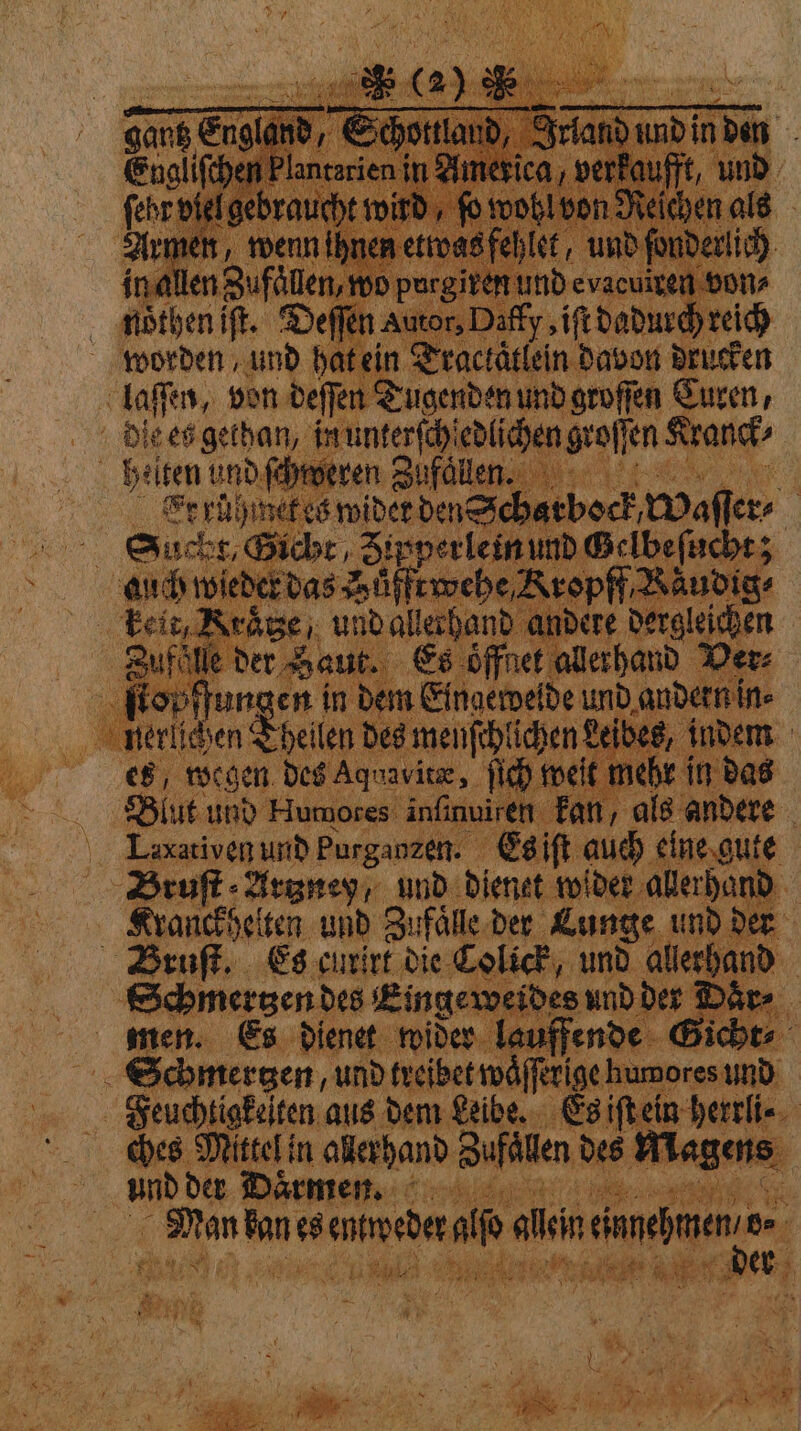 ❉ (2) ❉
gantz England, Schottland, Irland und in den
Engliſchen Plantarien in America, verkaufft, und
ſehr viel gebraucht wird, ſo wohl von Reichen als
Armen, wenn ihnen etwas fehlet, und ſonderlich
in allen Zufaͤllen, wo purgiren und evacuiren von⸗
noͤthen iſt. Deſſen Autor, Daffy, iſt dadurch reich
worden, und hat ein Tractaͤtlein davon drucken
laſſen, von deſſen Tugenden und groſſen Curen,
die es gethan, in unterſchiedlichen groſſen Kranck⸗
heiten und ſchweren Zufaͤllen.
Er ruͤhmet es wider den Scharbock, Waſſer⸗
Sucht, Gicht, Zipperlein und Gelbeſucht;
auch wieder das Huͤfftwehe, Kropff, Raͤudig⸗
keit, Kraͤtze, und allerhand andere dergleichen
Zufaͤlle der Haut. Es oͤffnet allerhand Ver⸗
ſtopffungen in dem Eingeweide und andern in⸗
nerlichen Theilen des menſchlichen Leibes, indem
es, wegen des Aquavitæ, ſich weit mehr in das
Blut und Humores inſinuiren kan, als andere
Laxativen und Purganzen. Es iſt auch eine gute
Bruſt⸗Artzney, und dienet wider allerhand
Kranckheiten und Zufaͤlle der Lunge und der
Bruſt. Es curirt die Colick, und allerhand
Schmertzen des Eingeweides und der Daͤr⸗
men. Es dienet wider lauffende Gicht⸗
Schmertzen, und treibet waͤſſerige humores und
Feuchtigkeiten aus dem Leibe. Es iſt ein herrli⸗
ches Mittel in allerhand Zufaͤllen des Magens
und der Daͤrmen.
Man kan es entweder alſo allein einnehmen/ o⸗
der